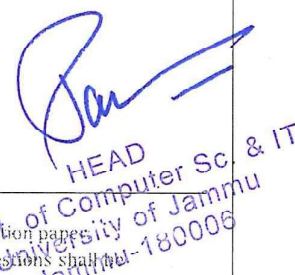 HEAD
of Computer Sc. & IT
University of Jammu
Jammu-180006
tion paper
estions shall be